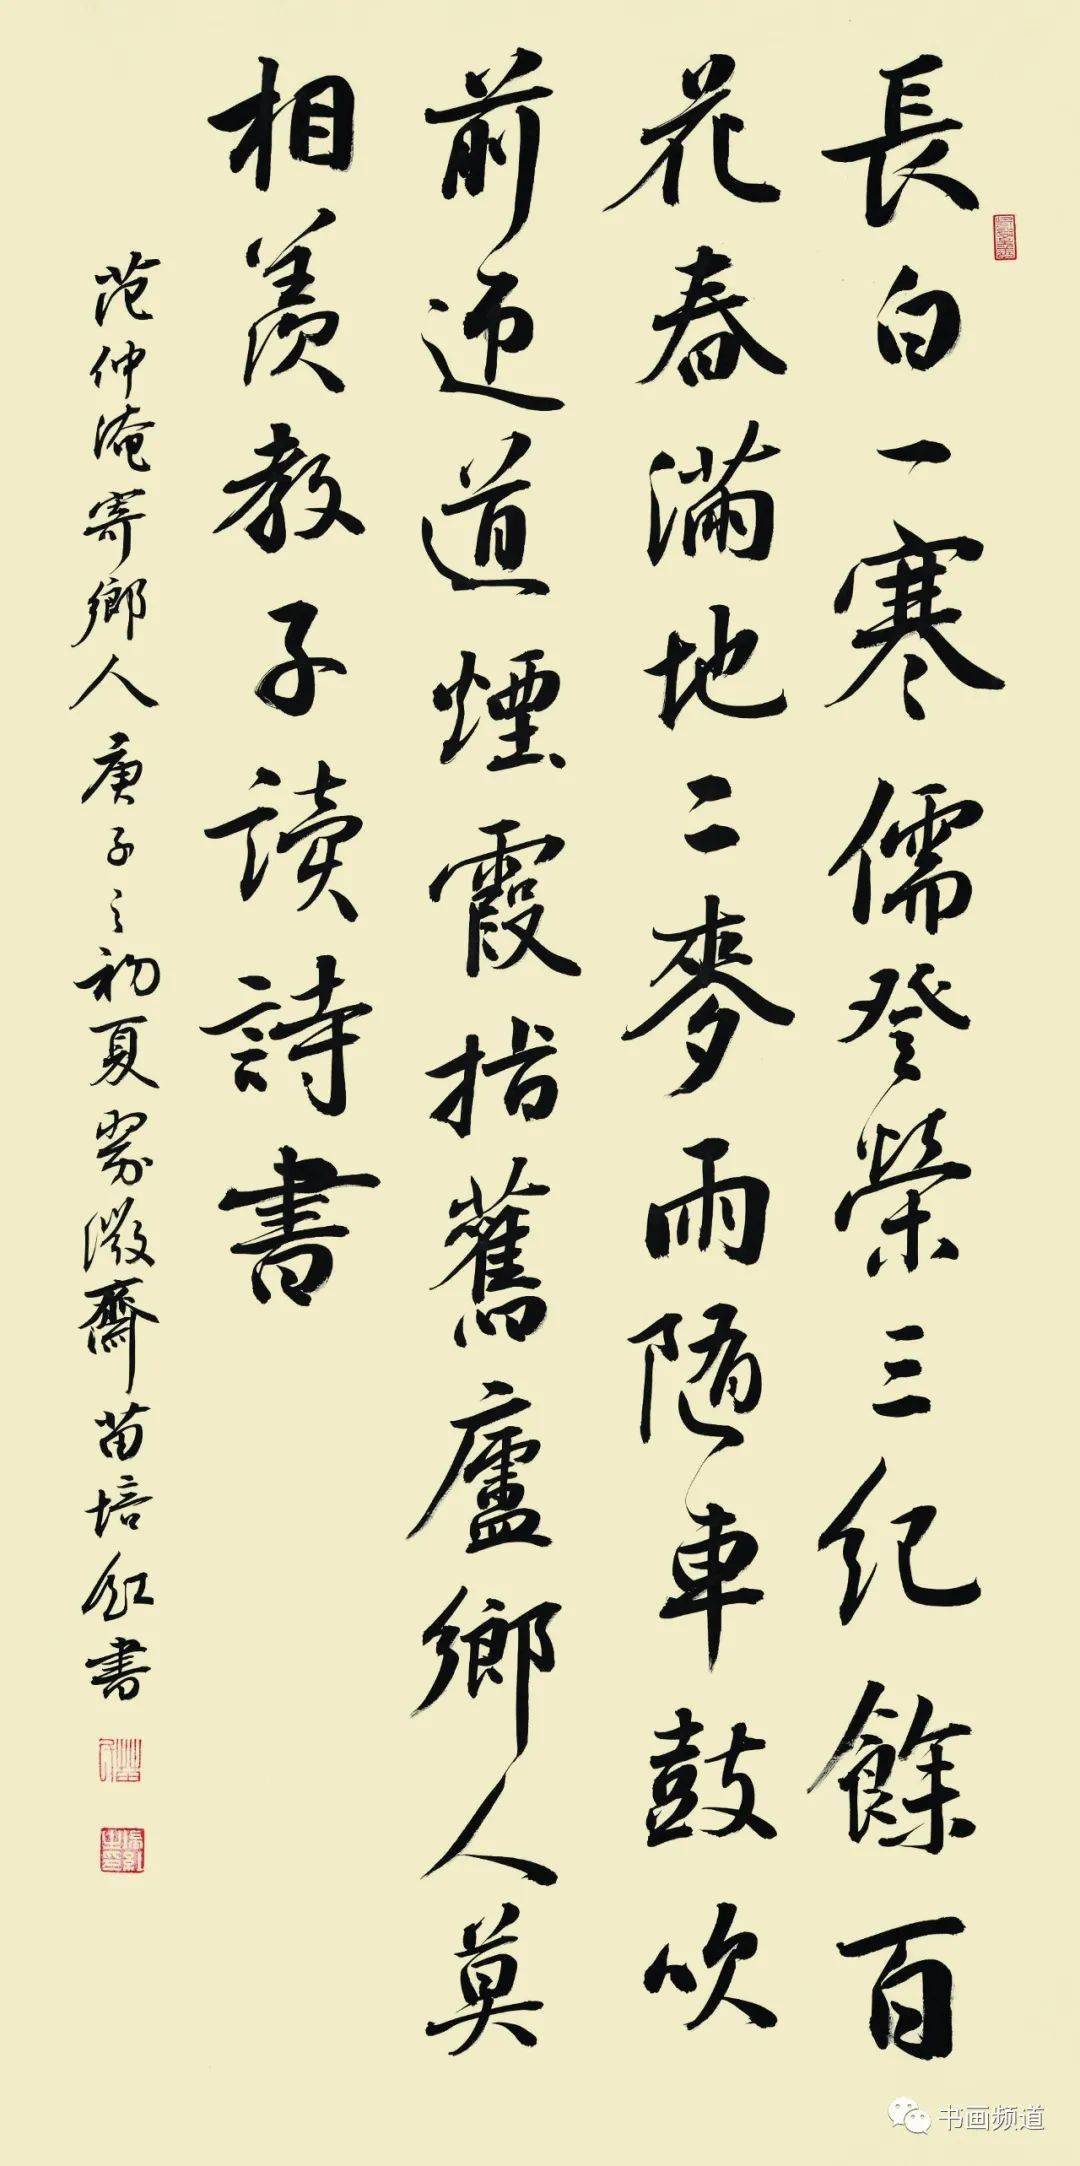 長白一寒儒登榮三紀餘百
花春滿地二麥雨随車鼓吹
前迎道煙霞指舊廬鄉人莫
相羨教子讀詩書
范仲淹寄鄉人庚子之初夏微齋苗培紅書
书画频道